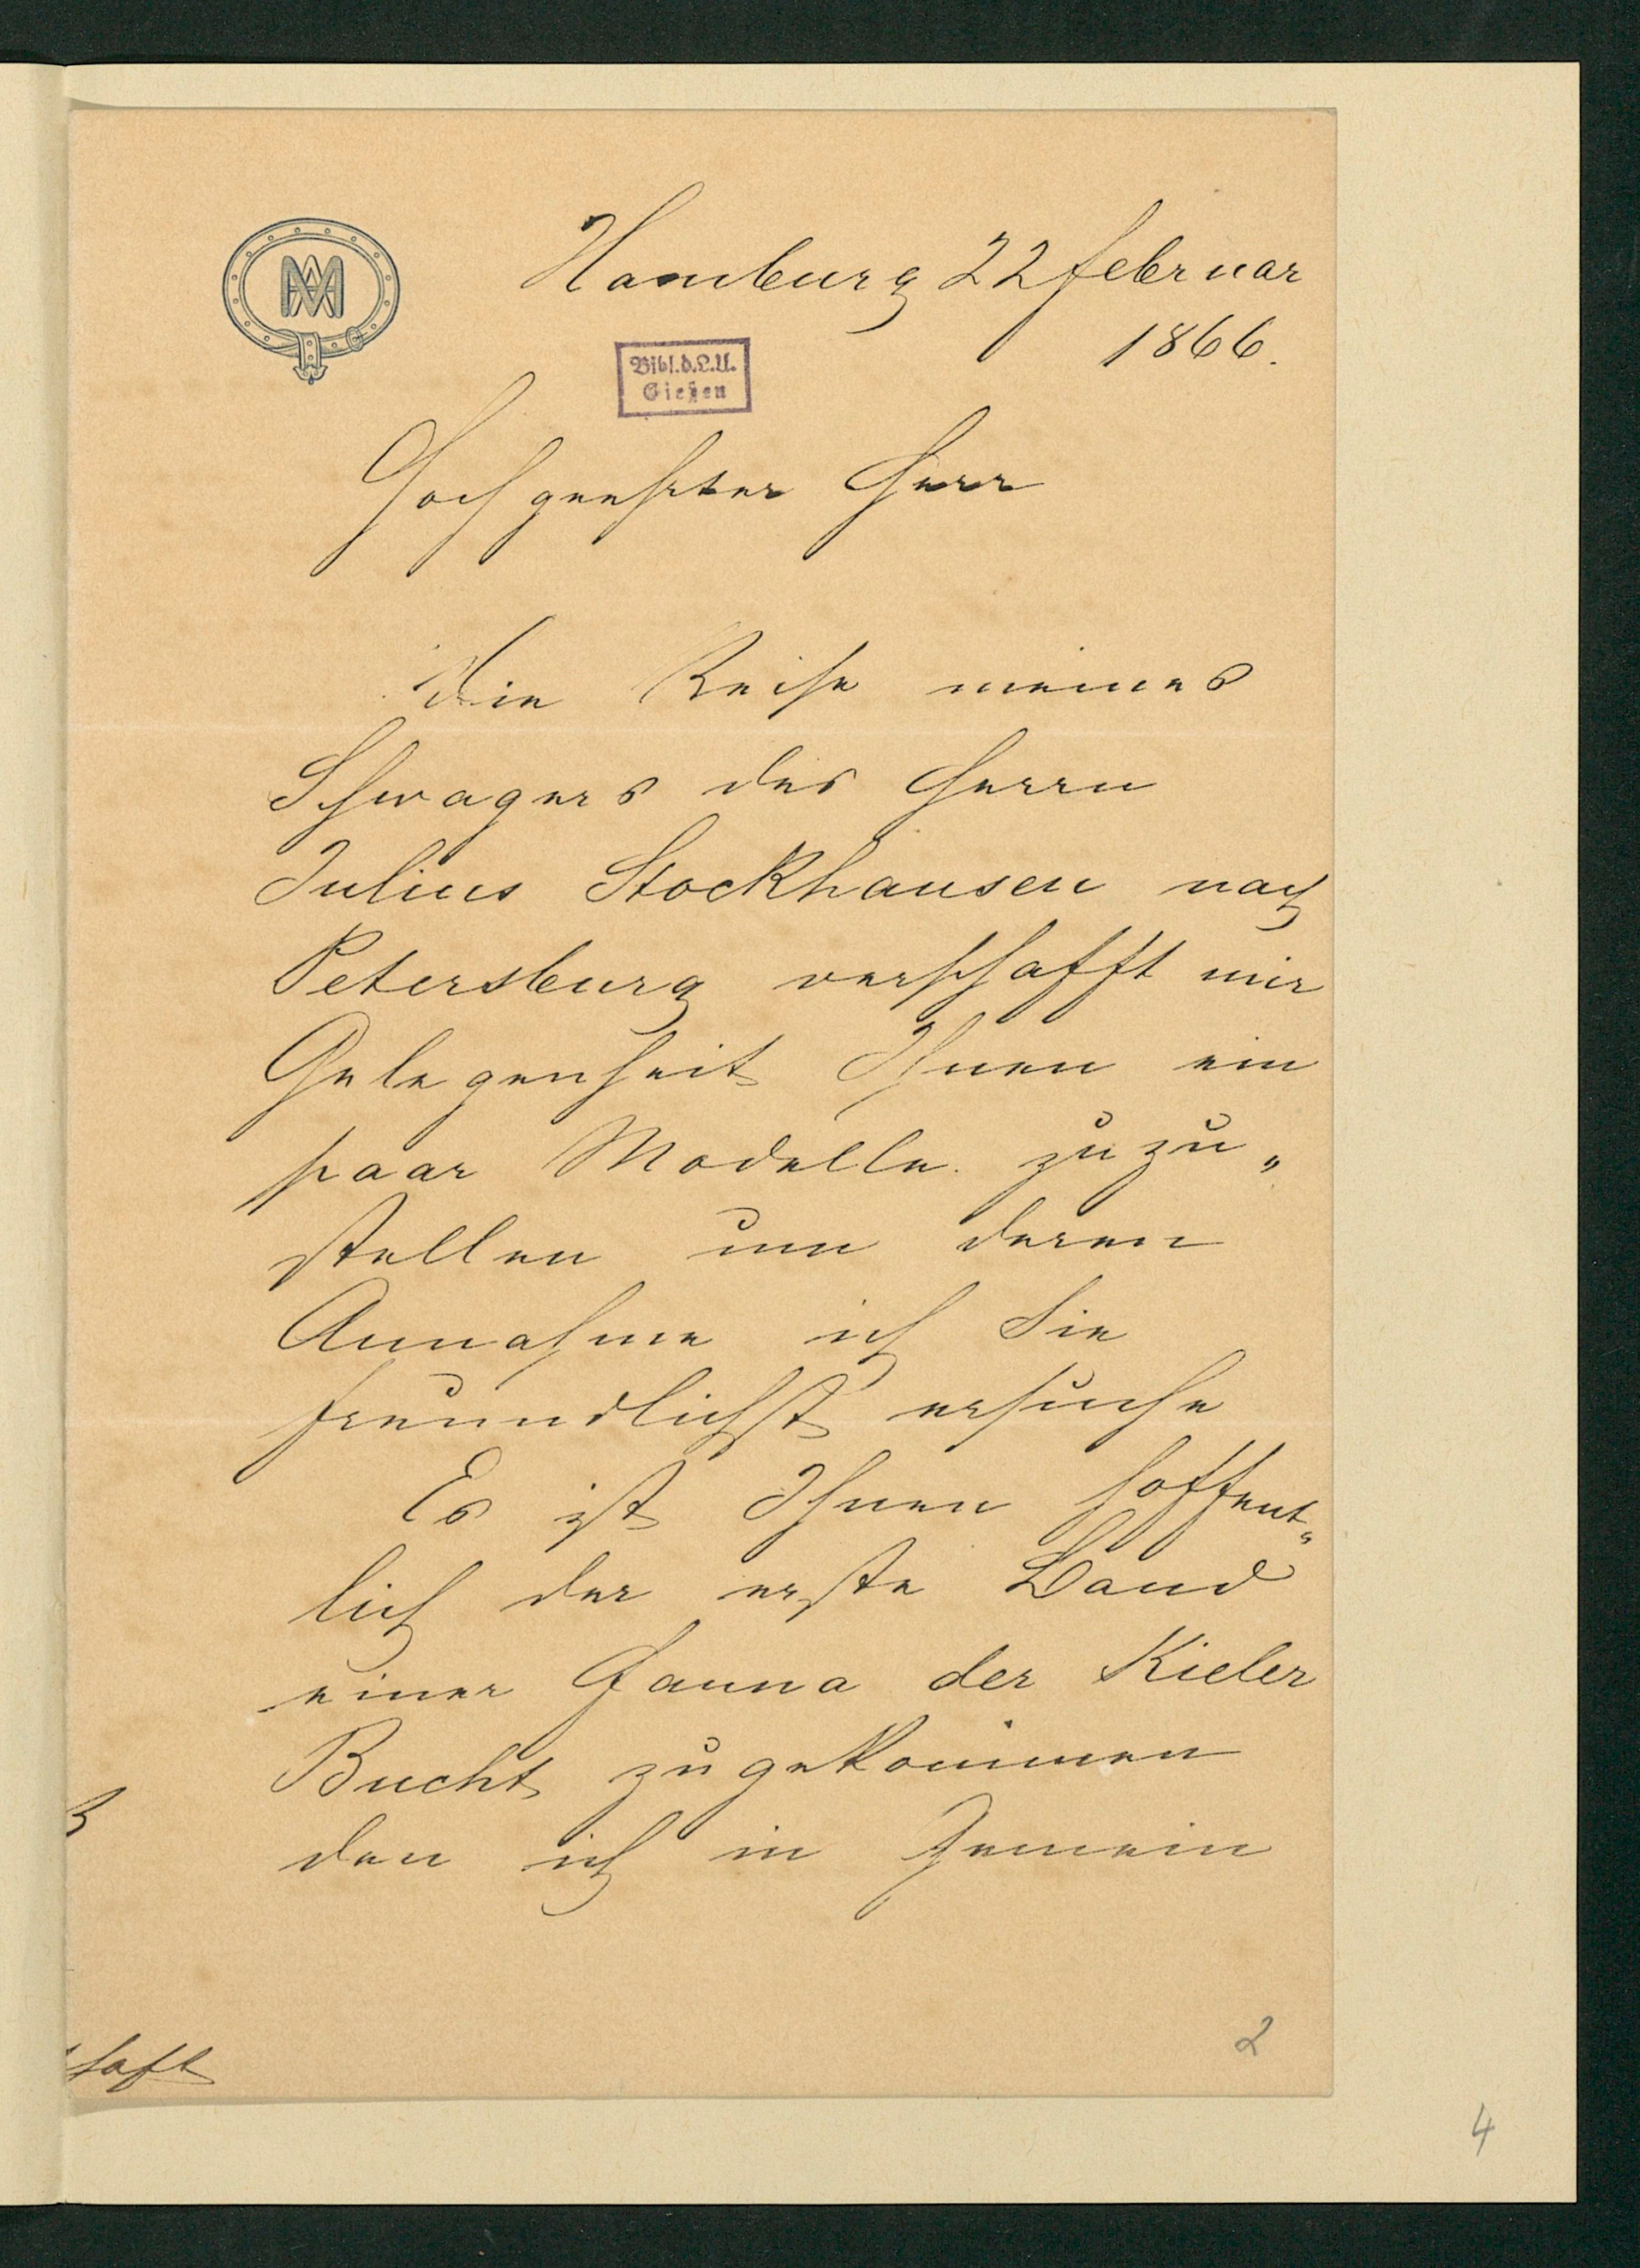 Hamburg 22 februar
1866.
MA
Bibl.d.L.U.
Gießen
Hochgeehrter Herr
Die Reise meines
Schwagers des Herrn
Julius Stockhausen nach
Petersburg verschafft mir
Gelegenheit Ihnen ein
paar Modelle zuzu„
stellen um deren
Annahme ich Sie
freundlichst ersuche
Es ist Ihnen hoffent„
lich der erste Band
einer Fauna der Kieler
Bucht zugekommen
den ich in Gemein
2
4